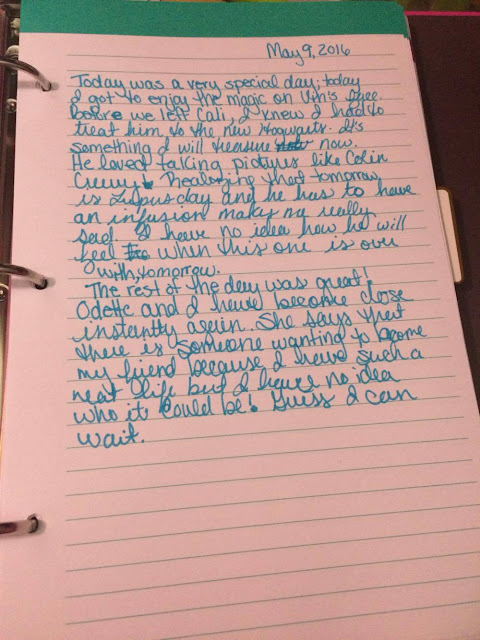 May 9, 2016
Today was a very special day; today
I got to enjoy the magic on Vin's face.
Before we left Cali, I knew I had to
treat him to the new Hogwarts. It's
something I will treasure now.
He loved taking pictures like Colin
Creevy! Realizing that tomorrow
is Lupus day and he has to have
an infusion makes me really
sad. I have no idea how he will
feel when this one is over
with, tomorrow.
The rest of the day was great!
Odette and I have become close
instantly again. She says that
there is someone wanting to become
my friend because I have such a
neat life but I have no idea
who it could be! Guess I can
wait.